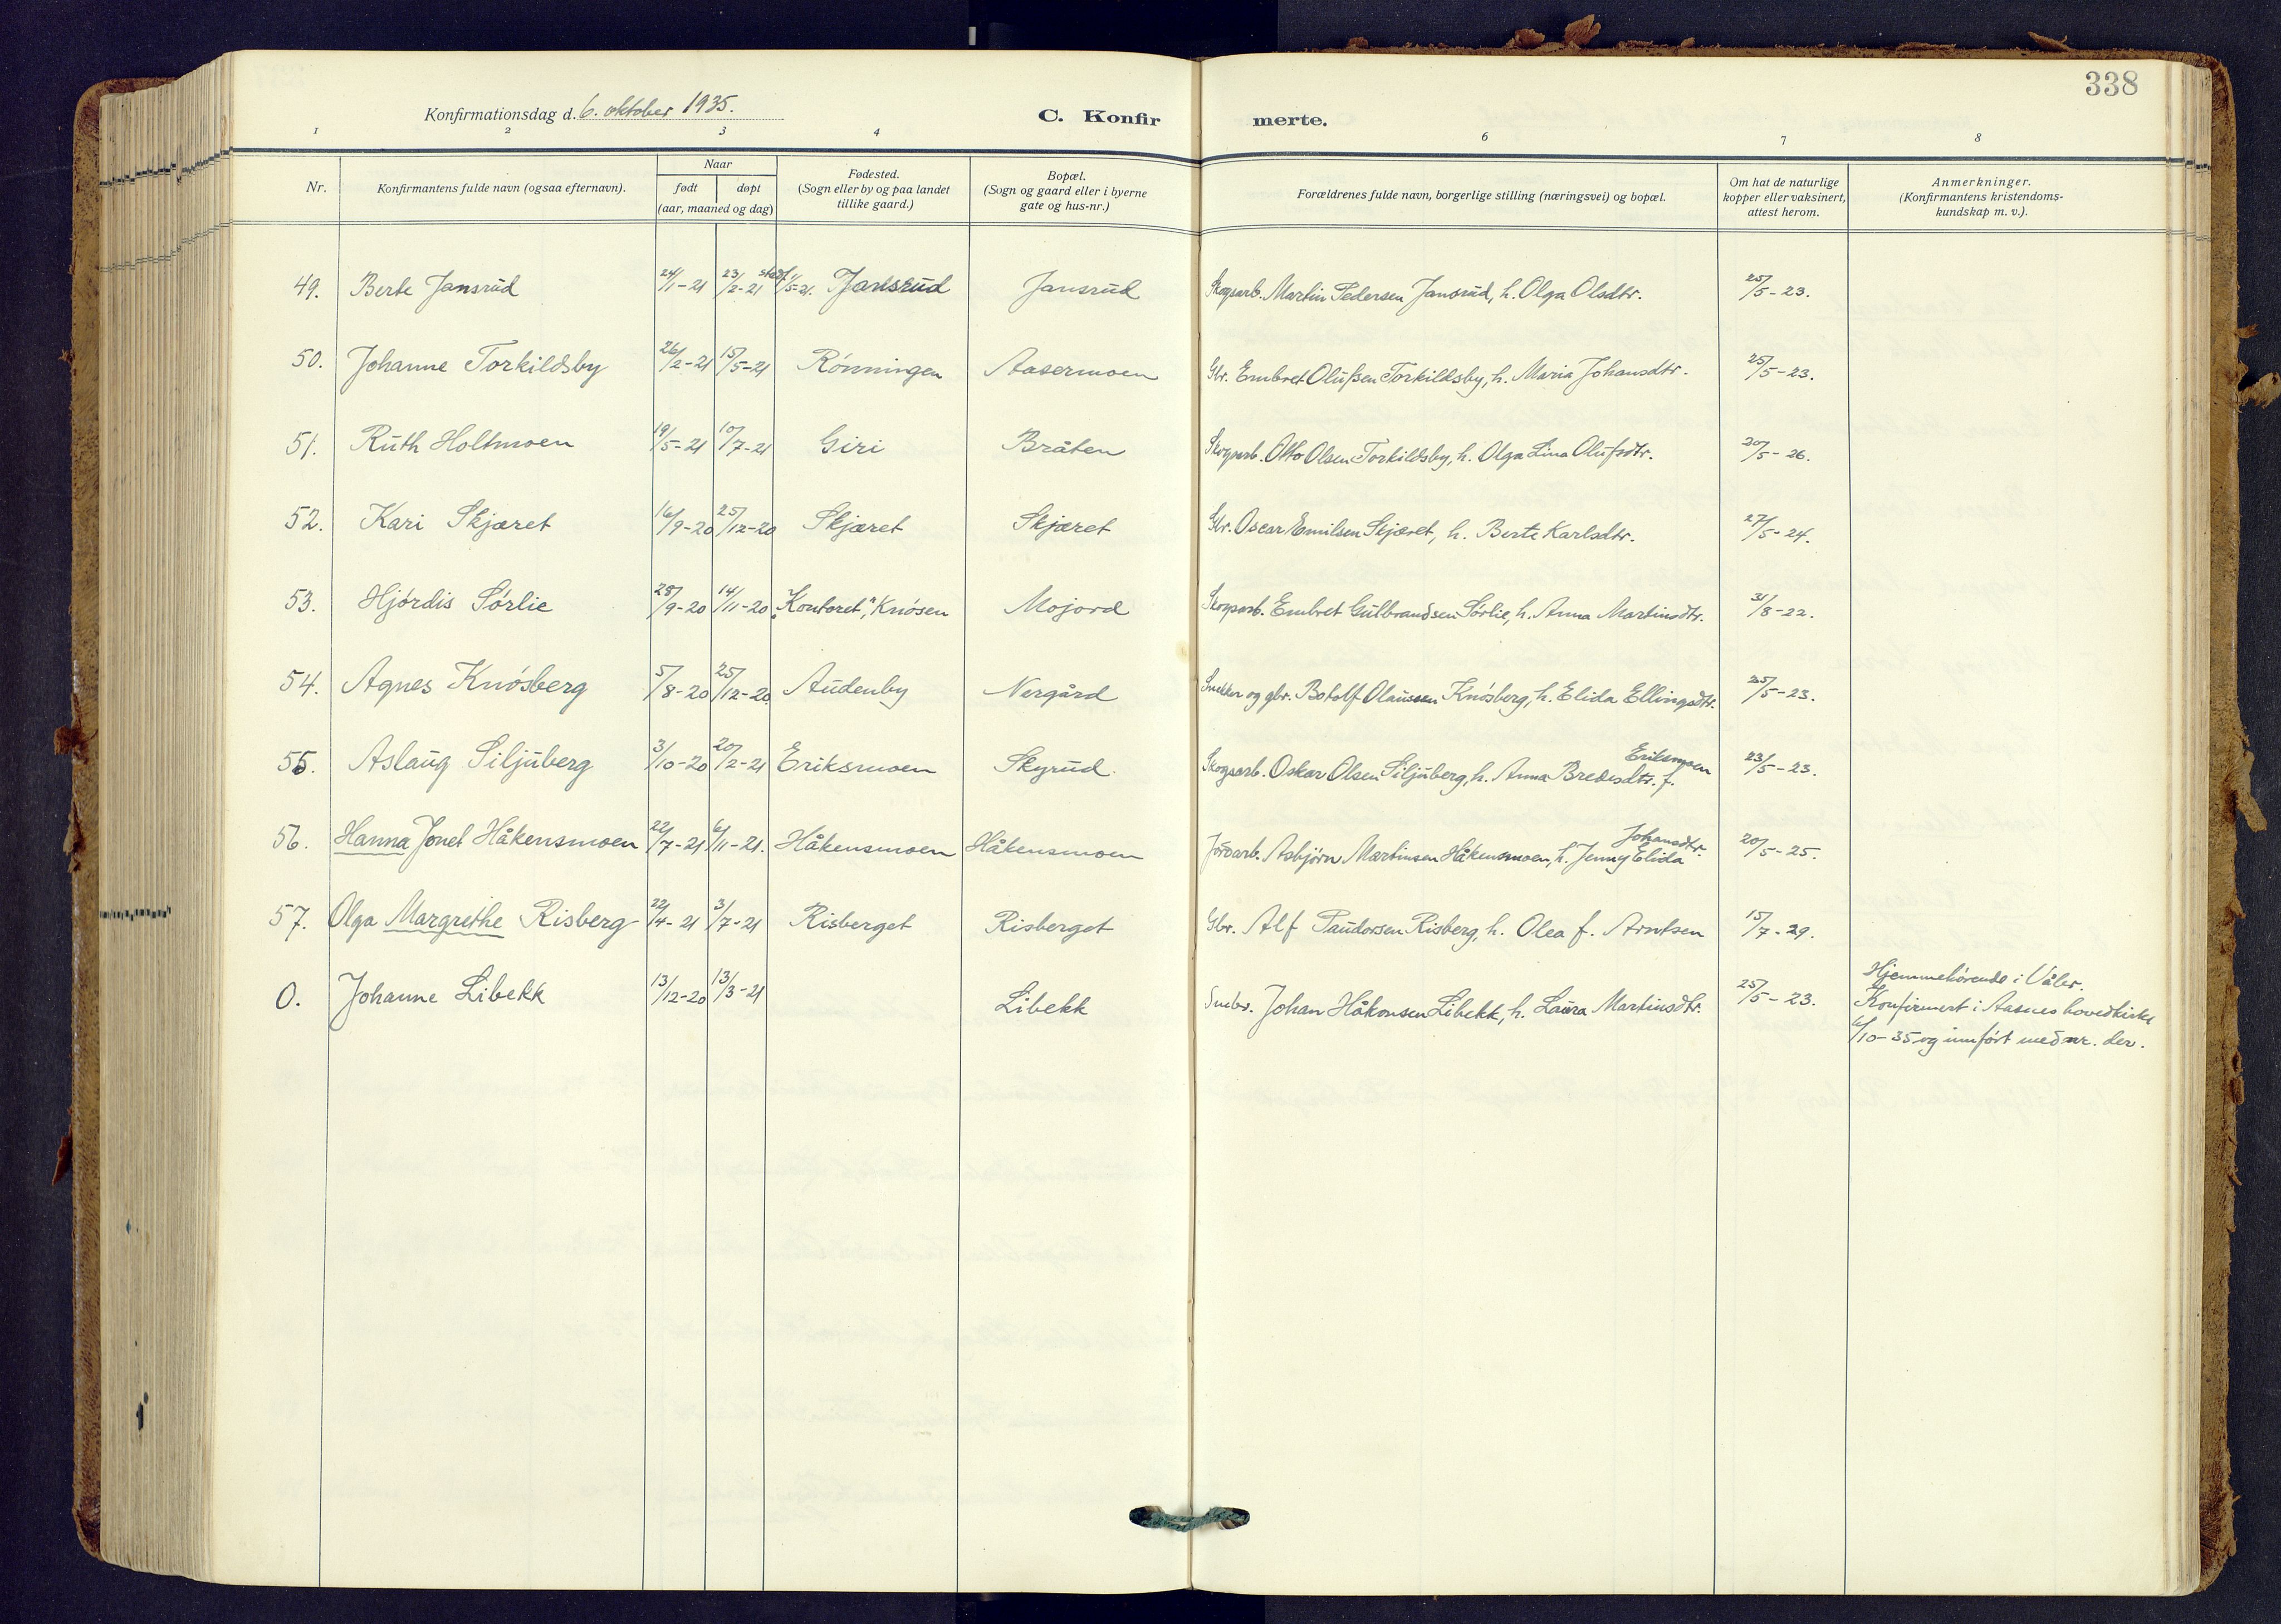 338
Konfirmationsdag d. 6. oktober 1935.
C. Konfirmerte.
1 2 3 4 6 7 8
Nr. Konfirmantens fulde navn (ogsaa efternavn). Naar født døpt (aar, maaned og dag) Fødested. (Sogn eller by og paa landet tillike gaard.) Bopæl. (Sogn og gaard eller i byerne gate og hus-nr.) Forældrenes fulde navn, borgerlige stilling (næringsvei) og bopæl. Om hat de naturlige kopper eller vaksinert, attest herom. Anmerkninger. (Konfirmantens kristendoms-kundskap m. v.).
49. Berte Jansrud 24/1-21 23/2-21 stadf. 11/5-21. Jansrud Jansrud Skogsarb. Martin Pedersen Jansrud, h. Olga Olsdtr. 25/5-23.
50. Johanne Torkildsby 26/2-21 15/5-21 Rønningen Aasermoen Gbr. Embret Olufsen Torkildsby, h. Maria Johansdtr. 25/5-23.
51. Ruth Holtmoen 19/5-21 10/7-21 Giri Bråten Skogsarb. Otto Olsen Torkildsby, h. Olga Lina Olufsdtr. 20/5-26.
52. Kari Skjæret 16/9-20 25/12-20 Skjæret Skjæret Gbr. Oscar Emilsen Skjæret, h. Berte Karlsdtr. 27/5-24.
53. Hjørdis Sørlie 28/9-20 14/11-20 „Kontoret“, Knøsen Mojord Skogsarb. Embret Gulbrandsen Sørlie, h. Anna Martinsdtr. 31/8-22.
54. Agnes Knøsberg 5/8-20 25/12-20. Audenby Nergård Snekker og gbr. Botolf Olaussen Knøsberg, h. Elida Ellingsdtr. 25/5-23.
55. Aslaug Siljuberg 3/10-20 20/2-21 Eriksmoen Skyrud. Skogsarb. Oskar Olsen Siljuberg, h. Anna Bredesdtr. f. Eriksmoen 23/5-23.
56. Hanna Jonet Håkensmoen 22/7-21 6/11-21. Håkensmoen Håkensmoen Jordarb. Asbjørn Martinsen Håkensmoen, h. Jenny Elida Johansdtr. 20/5-25.
57. Olga Margrethe Risberg 22/4-21 3/7-21 Risberget Risberget Gbr. Alf Paudersen Risberg, h. Olea f. Arntsen 15/7-29.
0. Johanne Libekk 13/12-20 13/3-21 Libekk Smbr. Johan Håkonsen Libekk, h. Laura Martinsdtr. 25/5-23. Hjemmehørende i Våler.
Konfirmert i Aasnes hovedkirke
6/10-35 og innført med nr. der.